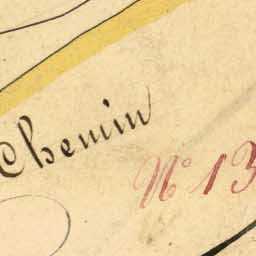 Chemin
N° 13